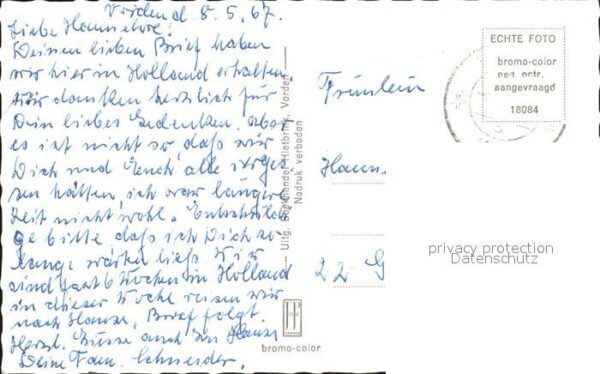 Vorden d. 8. 5. 67.
Liebe Hannelore!
Deinen lieben Brief haben
wir hier in Holland erhalten.
Wir danken herzlich für
Dein liebes Gedenken. Aber
es ist nicht so, daß wir
Dich und Euch alle verges
sen hätten, ich war längere
Zeit nicht wohl. Entschuldi
ge bitte, daß ich Dich so
lange warten ließ. Wir
sind fast 6 Wochen in Holland
in dieser Woche reisen wir
nach Hause, Brief folgt.
Herzl. Grüsse auch an Hause
Deine Fam. Schneider.
Uitg. Boekhandel Hietbrink, Vorden
Nadruk verboden
JP
bromo-color
ECHTE FOTO
bromo-color
ned. octr.
aangevraagd
18084
Fräulein
Hann
22 G
privacy protection
Datenschutz